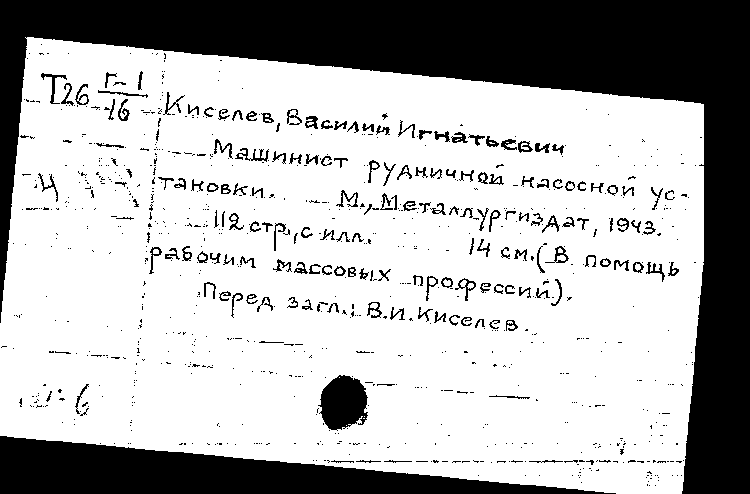 Т26 Г-1/16
Киселев, Василий Игнатьевич
Машинист рудничной насосной ус-
тановки. М., Металлургиздат, 1943.
112 стр., с илл. 14 см. (В помощь
рабочим массовых профессий).
Перед загл.: В.И. Киселев.